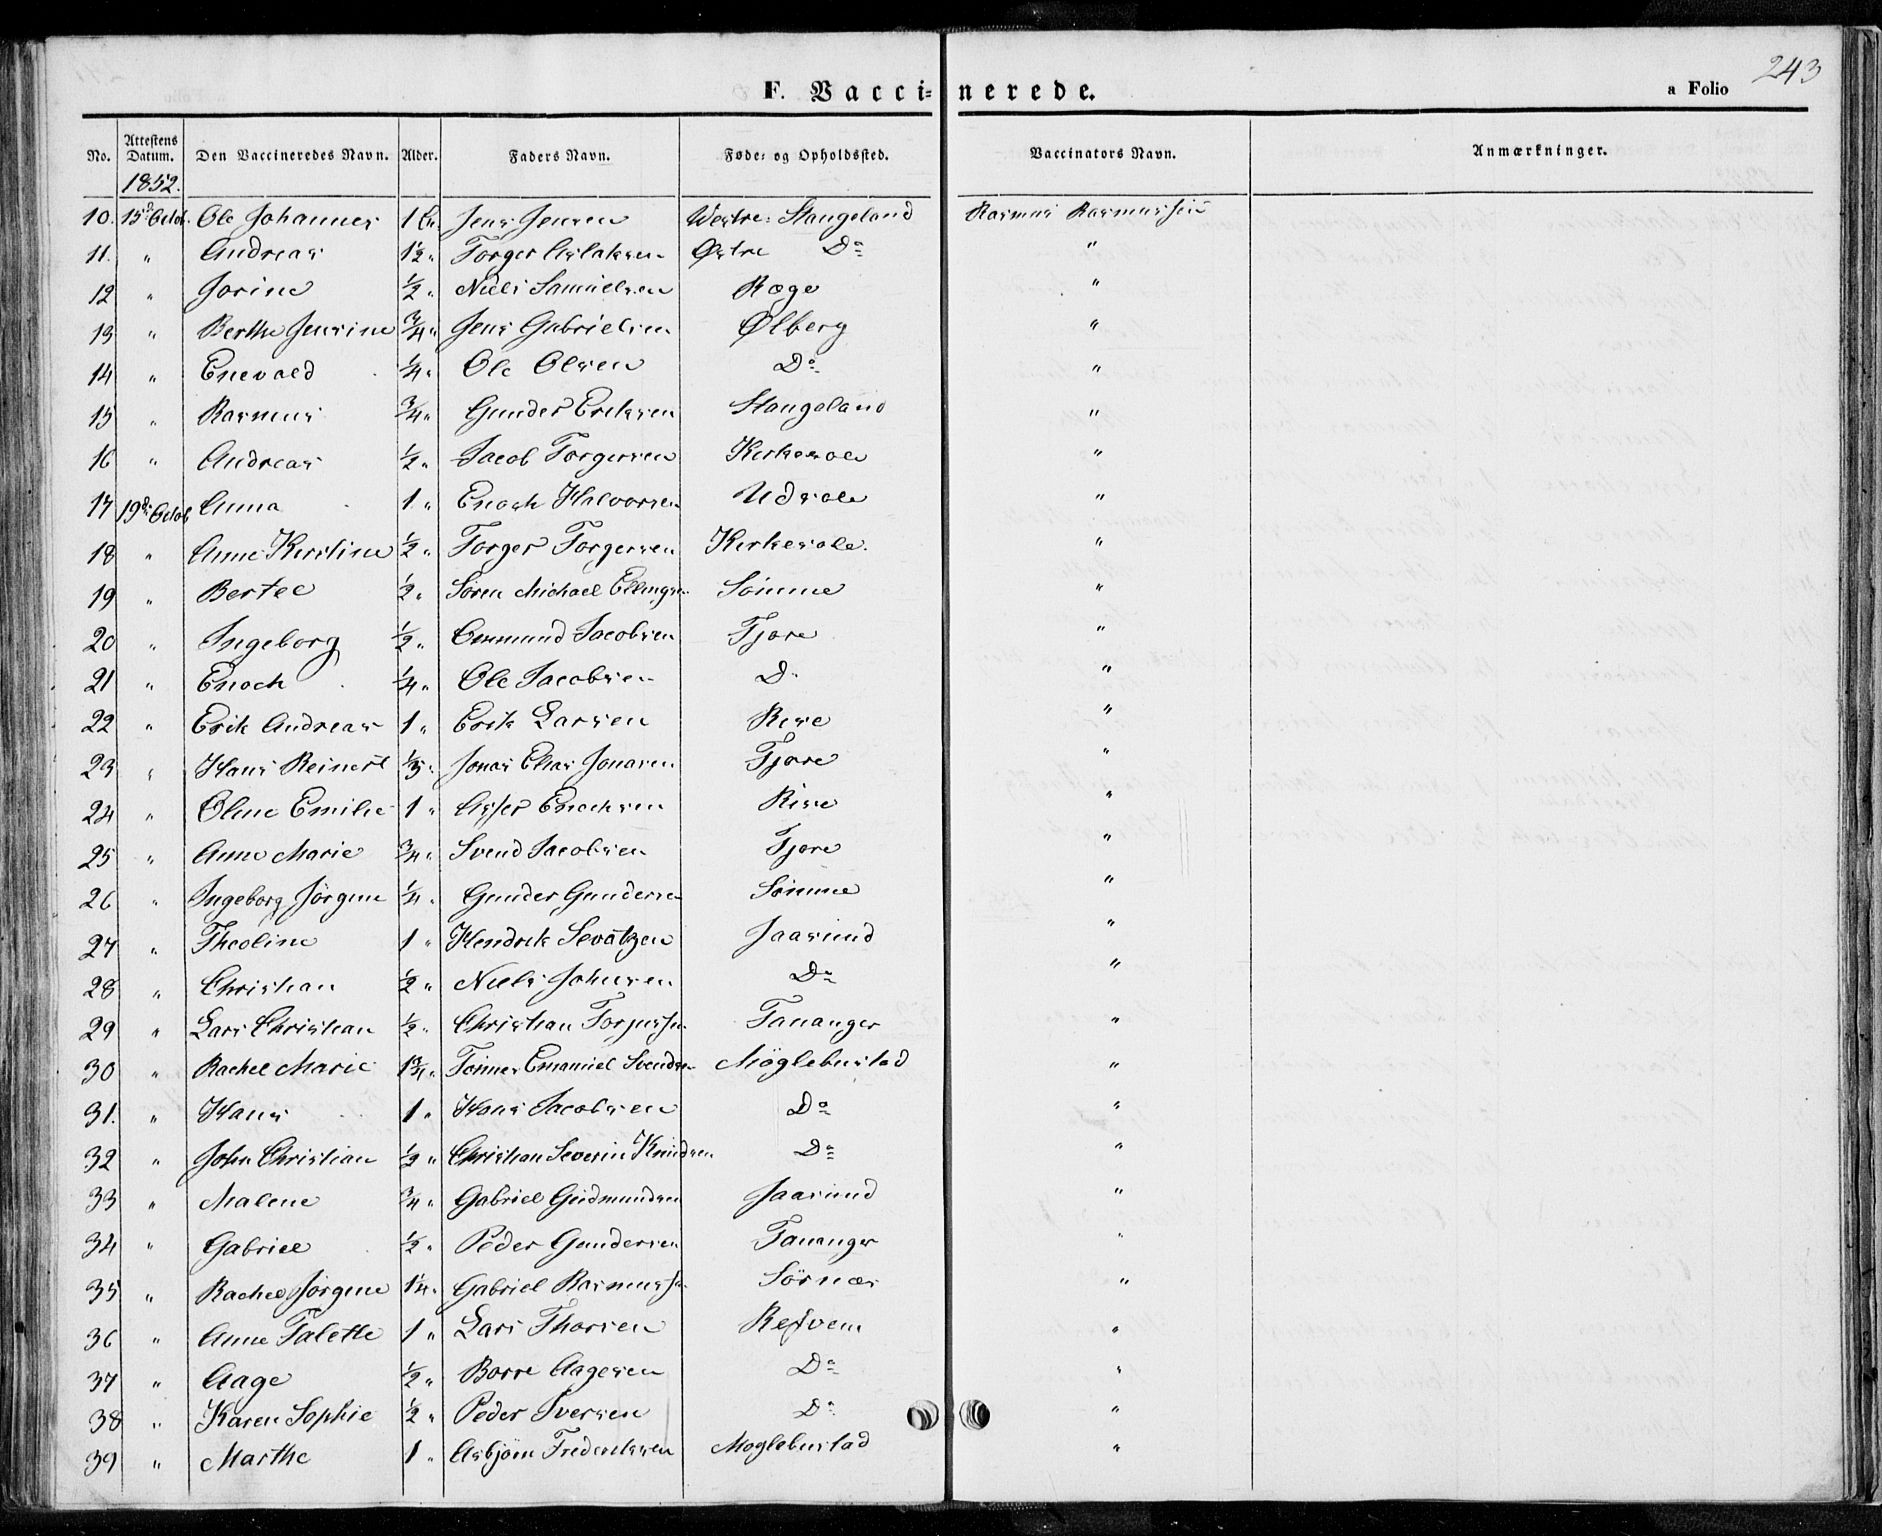 243
F. Vaccinerede. a Folio
No. Attestens Datum. Den Vaccineredes Navn. Alder. Faders Navn. Føde- og Opholdssted. Vaccinators Navn. Anmærkninger.
1852.
10. 15de Octob. Ole Johannes 1 Jens Jensen Westre Stangeland Rasmus Rasmussen
11. " Andreas 1½ " Torger Aslaksen Østre Do "
12 " Jorine ½ " Niels Samuelsen Ræge "
13 " Berthe Jensine ¾ " Jens Gabrielsen Ølberg "
14 " Enevald ¼ " Ole Olsen Do "
15 " Rasmus ¾ " Gunder Eriksen Stangeland "
16 " Andreas ½ " Jacob Torgersen Kirkesole "
17 19de Octob Anna 1 " Enoch Halvorsen Udsole "
18 " Anne Kirstine ½ " Torger Torgersen Kirkesole. "
19 " Bertel ½ " Sören Michael Ellingsen Sömme "
20 " Ingeborg ½ " Jacobsen Tjore "
21 " Enoch ¼ " Ole Jacobsen Do "
22 " Erik Andreas 1 " Erik Larsen Risse "
23 " Hans Reinert ⅓ " Jonas Elias Jonasen Tjore "
24 " Oline Emilie 1 " Asser Enochsen Risse "
25 " Anne Marie ¾ " Svend Jacobsen Tjore "
26 " Ingeborg Jörgine ¼ " Gunder Gundersen Sömme "
27 " Theoline 1 " Hendrik Jaasund "
28 " Christian ½ " Niels Johnsen Do "
29 " Lars Christian ½ " Christian Torjussen Tananger "
30 " Rachel Marie 1¾ " Tönnes Emanuel Svendsen Möglebustad "
31. " Hans 1 " Hans Jacobsen Do "
32 " John Christian ½ " Christian Severin Knudsen Do "
33 " Malene ¾ " Gabriel Gudmundsen Jaasund "
34 " Gabriel ½ " Peder Gundersen Tananger "
35 " Rachel Jörgine 1¼ " Gabriel Rasmussen Sörnæs "
36 " Anne Talette 1 " Lars Thorsen Refvem "
37 " Aage ½ " Borre Aagesen Do "
38 " Karen Sophie ½ " Peder Iversen Do "
39 " Marthe 1 " Asbjörn Fredriksen Moglebustad "